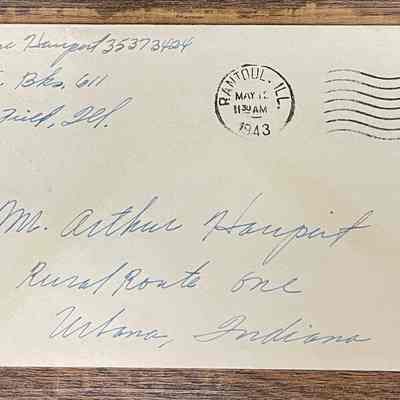 Haupert 35373424
Bks. 611
Field, Ill.
RANTOUL, ILL.
MAY 12
11 30 AM
1943
Mr. Arthur Haupert
Rural Route One
Urbana, Indiana